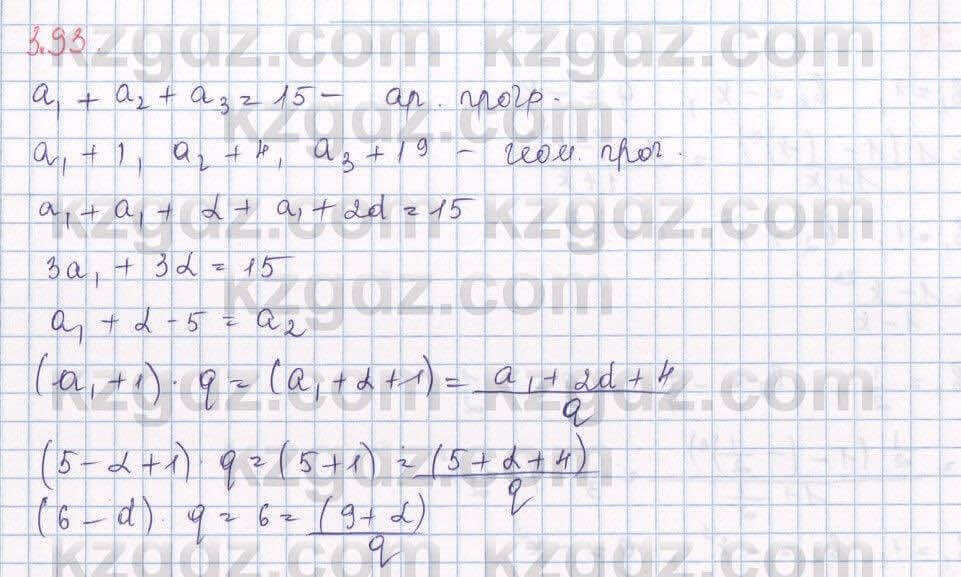 3.93.
a₁ + a₂ + a₃ = 15 — ар. прогр.
a₁ + 1, a₂ + 4, a₃ + 19 — геом. прог.
a₁ + a₁ + d + a₁ + 2d = 15
3a₁ + 3d = 15
a₁ + d - 5 = a₂
(a₁ + 1) · q = (a₁ + d + 1) = (a₁ + 2d + 4)/q
(5 - d + 1) · q = (5 + 1) = (5 + d + 4)/q
(6 - d) · q = 6 = (9 + d)/q
kzgdz.com
kzgdz.com
kzgdz.com
kzgdz.com
kzgdz.com
kzgdz.com
kzgdz.com